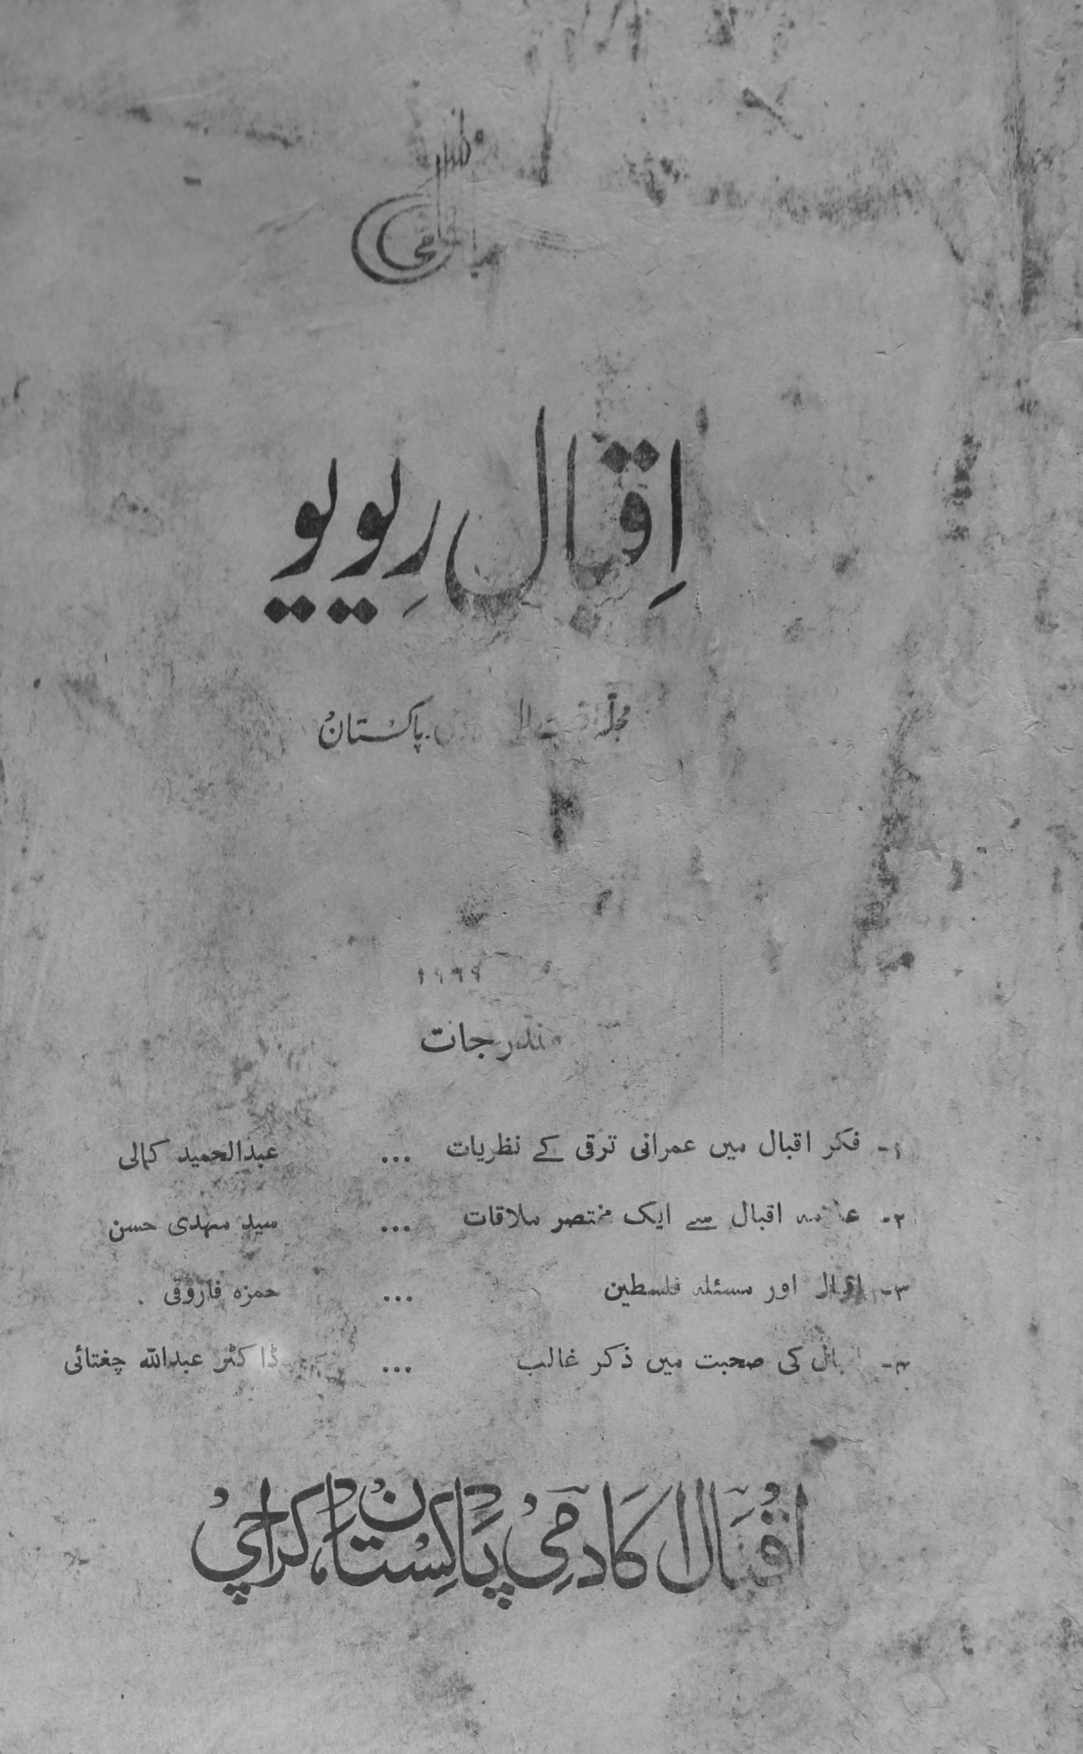 اِقبال رِیویو
مجلّہ پاکستان
۱۹۶۹
۱- فکر اقبال میں عمرانی ترقی کے نظریات ... عبدالحمید کمالی
۲- علامہ اقبال سے ایک مختصر ملاقات ... سید مہدی حسن
۳- اقبال اور مسئلہ فلسطین ... حمزہ فاروقی
۴- کی صحبت میں ذکر غالب ... ڈاکٹر عبداللہ چغتائی
اقبال اکادمی پاکستان، کراچی